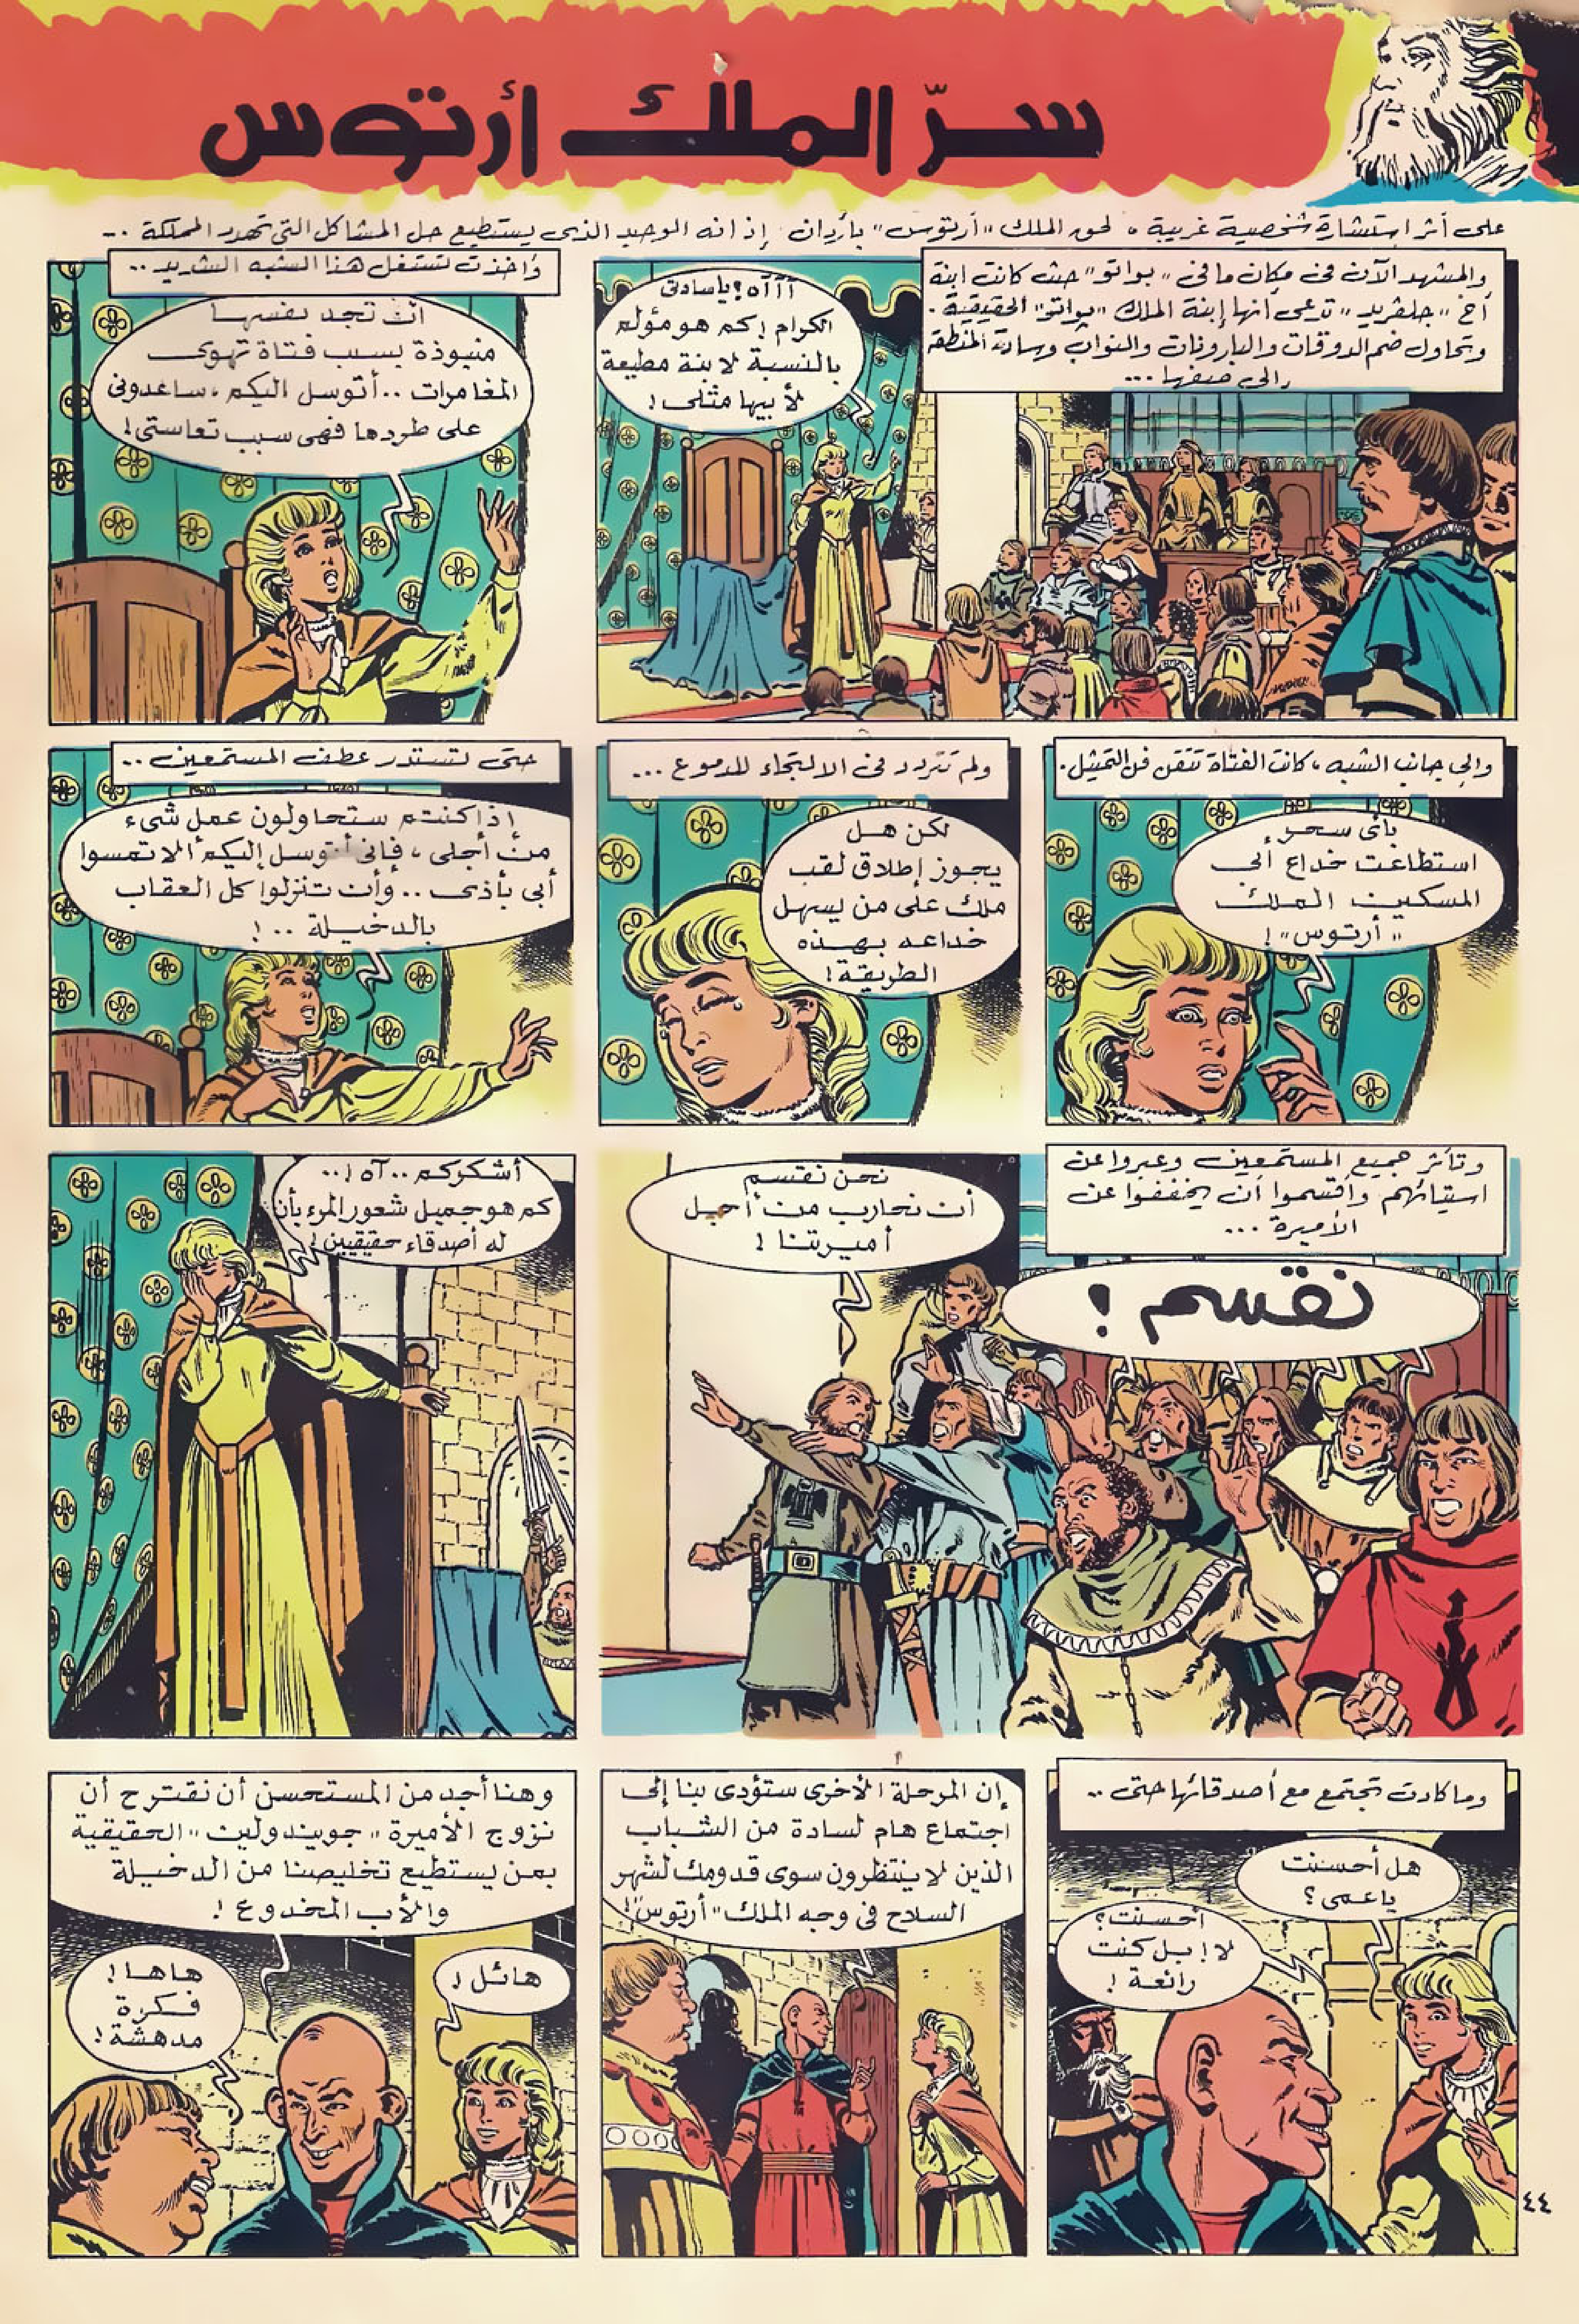 سرّ الملك أرتوس
على أثر استشارة شخصية غريبة ، لحق الملك "أرتوس" بأردان . إذ انه الوحيد الذى يستطيع حل المشاكل التى تهدد المملكة ..
والمشهد الآن فى مكان ما فى "بواتو" حيث كانت ابنة
أخ "جلفريد" تدعى أنها إبنة الملك "بواتو" الحقيقية .
وتحاول ضم الدوقات والبارونات والنواب وسادة المنطقة
إلى صفها ...
آآآه ! ياسادتى
الكرام ! كم هو مؤلم
بالنسبة لابنة مطيعة
لأبيها مثلى !
وأخذت تستغل هذا الشبه الشديد ..
أن تجد نفسها
منبوذة بسبب فتاة تهوى
المغامرات .. أتوسل اليكم ، ساعدونى
على طردها فهى سبب تعاستى !
والى جانب الشبه ، كانت الفتاة تتقن فن التمثيل .
بأى سحر ،
استطاعت خداع أبى
المسكين الملك
"أرتوس" !
ولم تتردد فى الالتجاء للدموع ...
لكن هل
يجوز إطلاق لقب
ملك على من يسهل
خداعه بهذه
الطريقة !
حتى تستدر عطف المستمعين ..
إذا كنتم ستحاولون عمل شىء
من أجلى ، فإنى أتوسل إليكم ألا تمسوا
أبى بأذى .. وأن تنزلوا كل العقاب
بالدخيلة .. !
وتأثر جميع المستمعين وعبروا عن
استيائهم وأقسموا أن يخففوا عن
الأميرة ...
نقسم !
نحن نقسم
أن نحارب من أجل
أميرتنا !
أشكركم .. آه ! ..
كم هو جميل شعور المرء بأن
له أصدقاء حقيقيين !
وما كادت تجتمع مع أصدقائها حتى ..
هل أحسنت
ياعمى ؟
أحسنت ؟
لا ! بل كنت
رائعة !
إن المرحلة الأخرى ستؤدى بنا إلى
اجتماع هام لسادة من الشباب
الذين لا ينتظرون سوى قدومك لشهر
السلاح فى وجه الملك "أرتوس" !
وهنا أجد من المستحسن أن نقترح أن
نزوج الأميرة "جويندولين" الحقيقية
بمن يستطيع تخليصنا من الدخيلة
والأب المخدوع !
هائل !
هاها !
فكرة
مدهشة !
٤٤